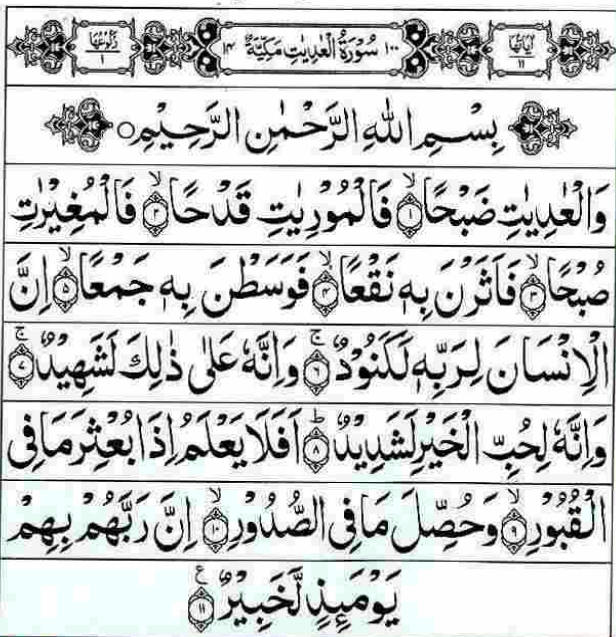 اٰيَاتُهَا ١١
١٠٠ سُوْرَةُ الْعٰدِيٰتِ مَكِّيَّةٌ ١٤
رُكُوْعُهَا ١
بِسْمِ اللّٰهِ الرَّحْمٰنِ الرَّحِيْمِ○
وَالْعٰدِيٰتِ ضَبْحًا ۙ﴿۱﴾ فَالْمُوْرِيٰتِ قَدْحًا ۙ﴿۲﴾ فَالْمُغِيْرٰتِ
صُبْحًا ۙ﴿۳﴾ فَاَثَرْنَ بِهٖ نَقْعًا ۙ﴿۴﴾ فَوَسَطْنَ بِهٖ جَمْعًا ۙ﴿۵﴾ اِنَّ
الْاِنْسَانَ لِرَبِّهٖ لَكَنُوْدٌ ۚ﴿۶﴾ وَاِنَّهٗ عَلٰى ذٰلِكَ لَشَهِيْدٌ ۚ﴿۷﴾
وَاِنَّهٗ لِحُبِّ الْخَيْرِ لَشَدِيْدٌ ؕ﴿۸﴾ اَفَلَا يَعْلَمُ اِذَا بُعْثِرَ مَا فِى
الْقُبُوْرِ ۙ﴿۹﴾ وَحُصِّلَ مَا فِى الصُّدُوْرِ ۙ﴿۱۰﴾ اِنَّ رَبَّهُمْ بِهِمْ
يَوْمَىِٕذٍ لَّخَبِيْرٌ ࣖ﴿۱۱﴾